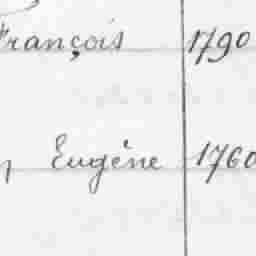 François 1790
Eugène 1760